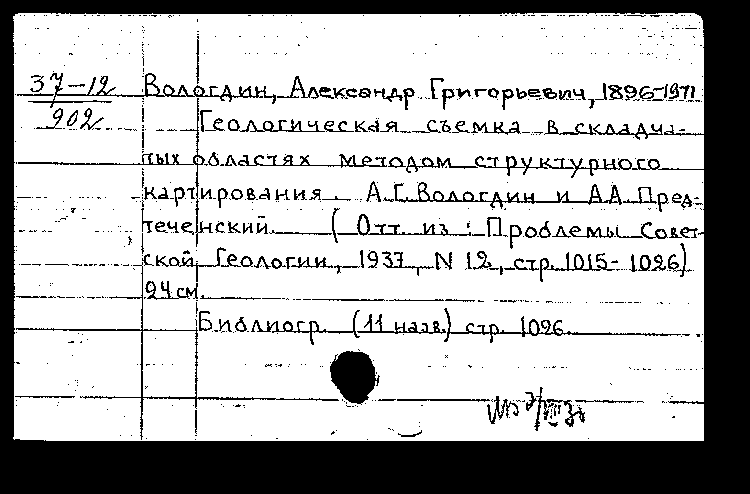 37-12
902
Вологдин, Александр Григорьевич, 1896-1971
Геологическая съемка в складча-
тых областях методом структурного
картирования. А.Г. Вологдин и А.А. Пред-
теченский. (Отт. из: Проблемы Совет-
ской Геологии, 1937, N 12, стр. 1015-1026)
24 см.
Библиогр. (11 назв.) стр. 1026.